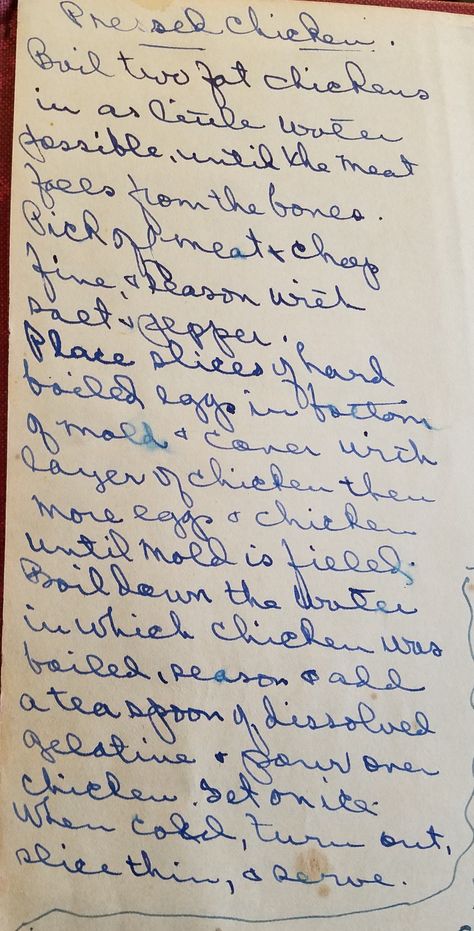 Pressed Chicken.
Boil two fat chickens
in as little water
possible, until the meat
falls from the bones.
Pick off meat & chop
fine, & season with
salt & pepper.
Place slices of hard
boiled eggs in bottom
of mold & cover with
layer of chicken then
more eggs & chicken
until mold is filled.
Boil down the water
in which chicken was
boiled, season & add
a teaspoon of dissolved
gelatine & pour over
chicken. Set on ice.
When cold, turn out,
slice thin, & serve.